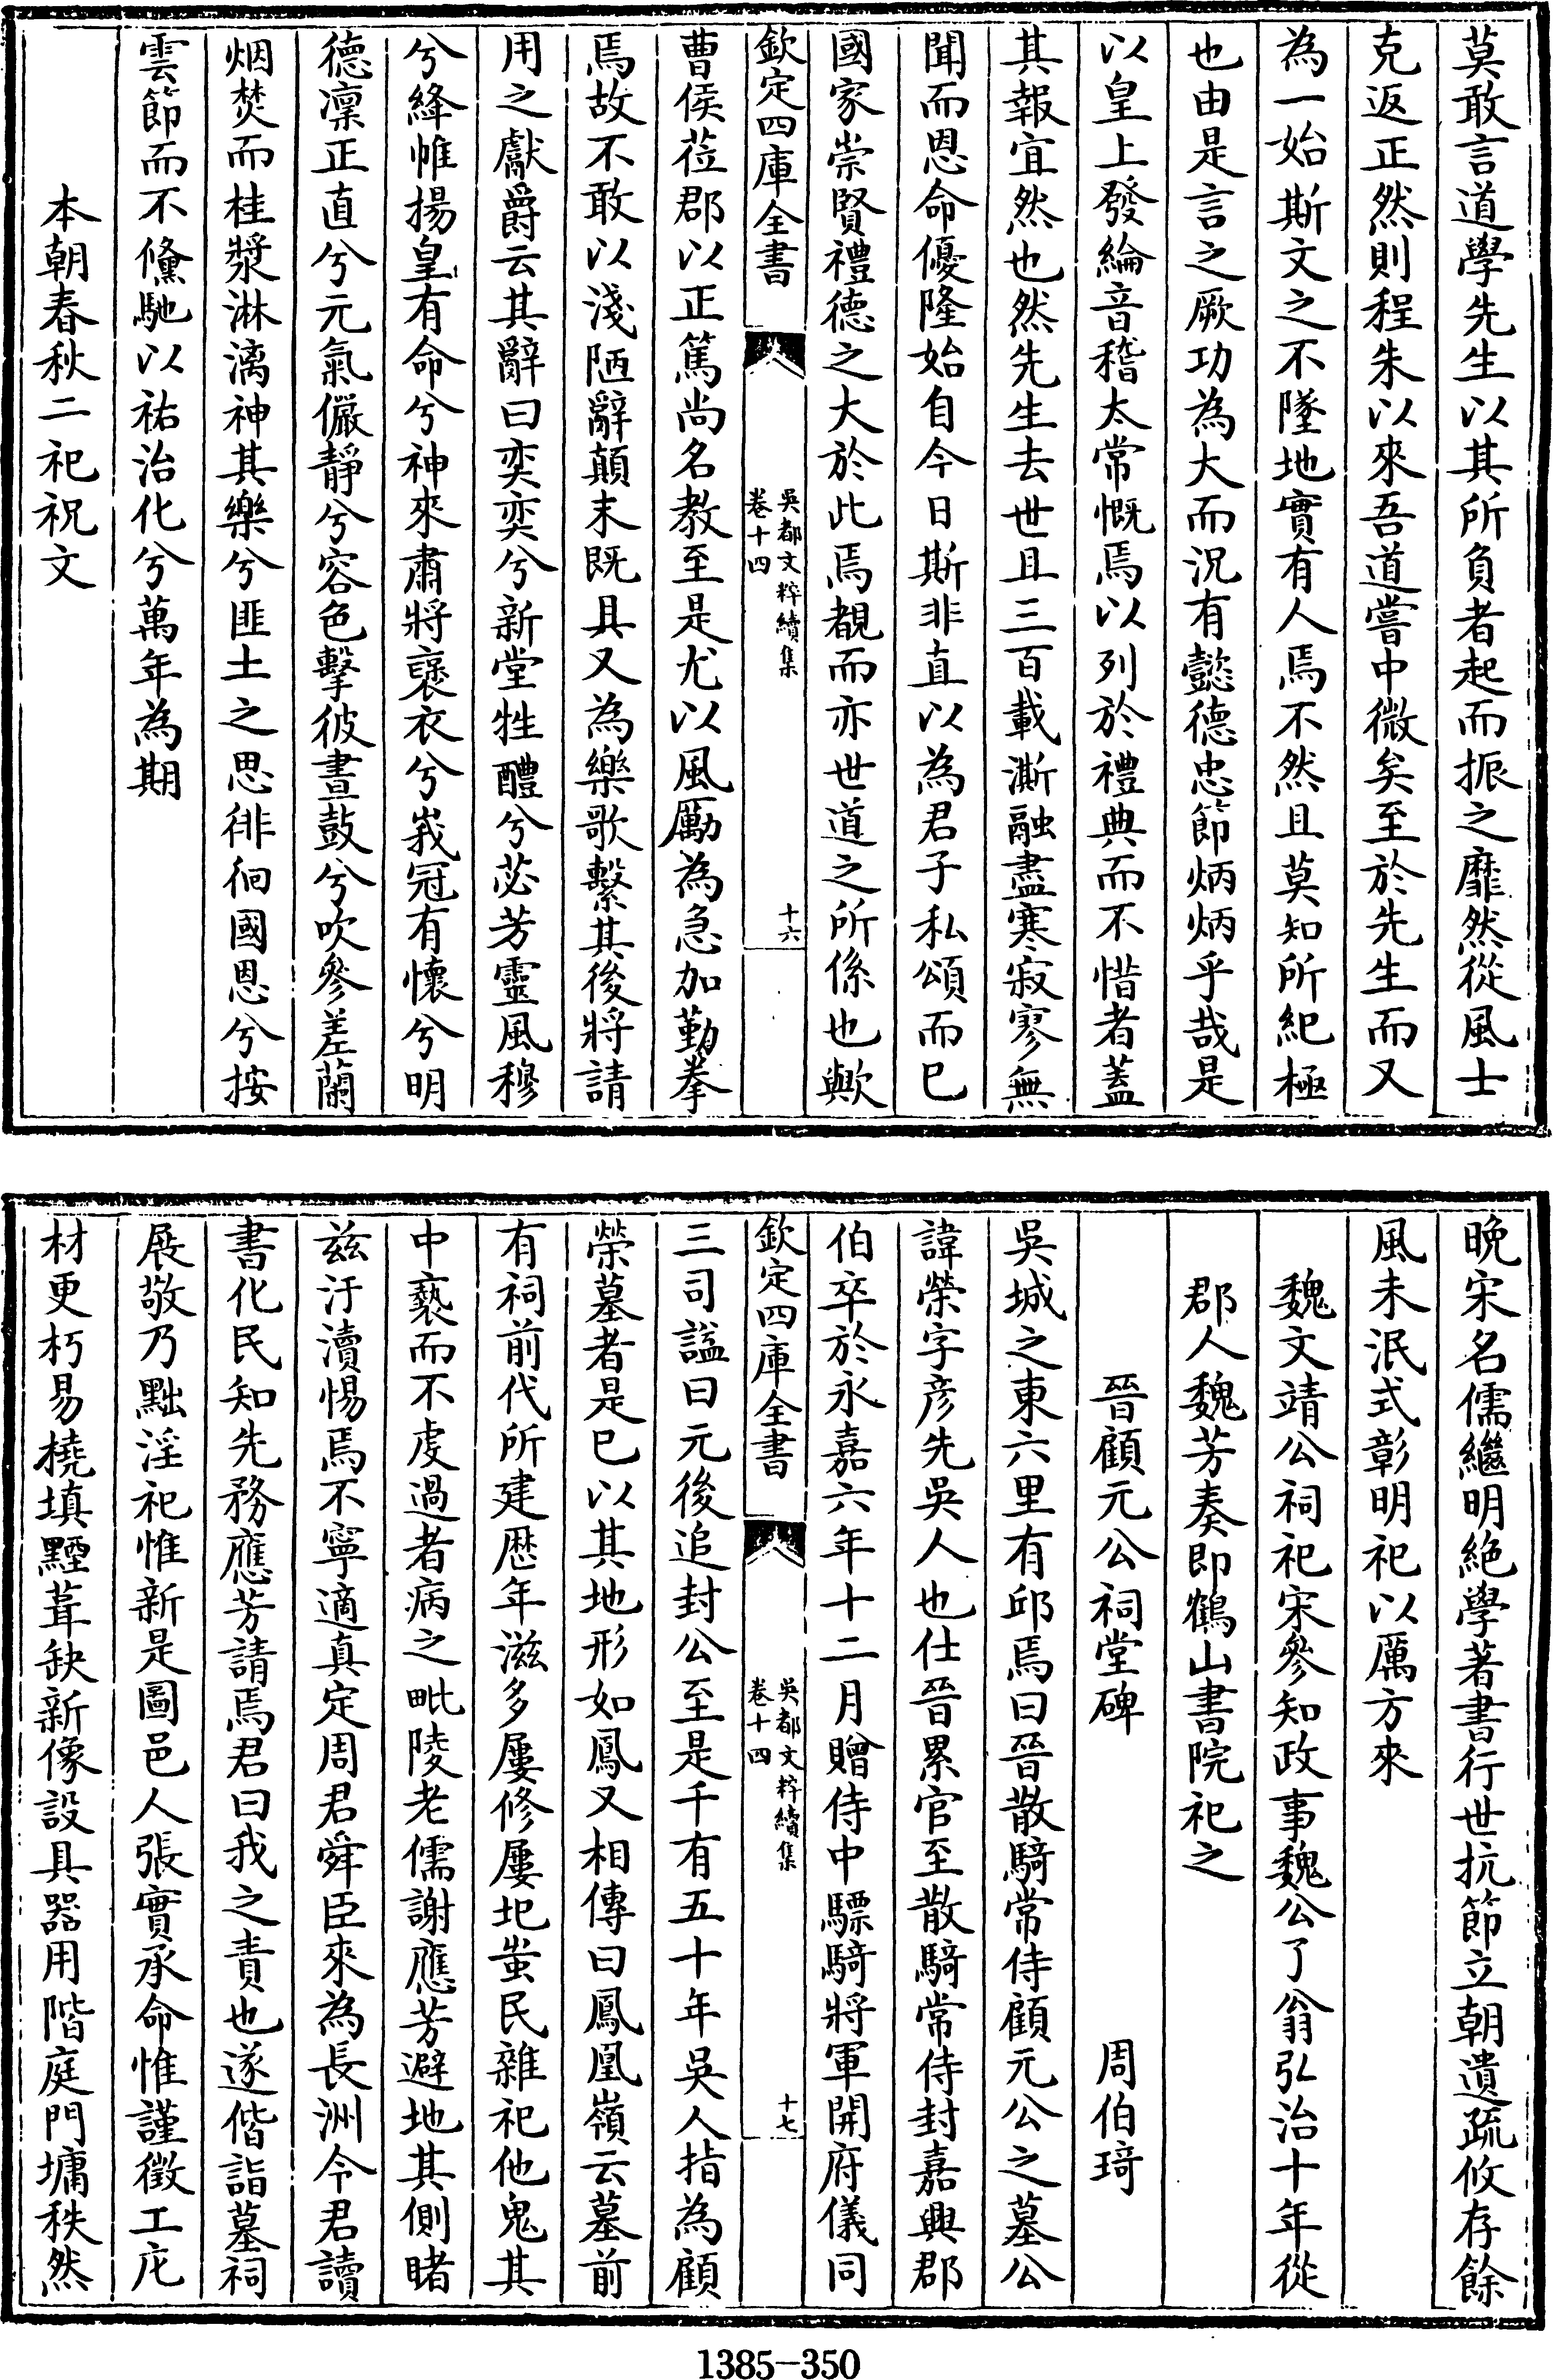 莫敢言道學先生以其所負者起而振之靡然從風士
克返正然則程朱以來吾道嘗中微矣至於先生而又
為一始斯文之不墜地實有人焉不然且莫知所紀極
也由是言之厥功為大而況有懿德忠節炳炳乎哉是
以皇上發綸音稽太常慨焉以列於禮典而不惜者蓋
其報宜然也然先生去世且三百載澌融盡寒寂寥無
聞而恩命優隆始自今日斯非直以為君子私頌而已
國家崇賢禮德之大於此焉覩而亦世道之所係也歟
欽定四庫全書
吳都文粹續集
卷十四
十六
曹侯莅郡以正篤尚名教至是尤以風勵為急加勤拳
焉故不敢以淺陋辭顛末既具又為樂歌繫其後將請
用之獻爵云其辭曰奕奕兮新堂牲醴兮苾芳靈風穆
兮絳帷揚皇有命兮神來肅將褎衣兮峩冠有懷兮明
德凜正直兮元氣儼靜兮容色擊彼晝鼓兮吹參差蘭
烟焚而桂漿淋漓神其樂兮匪土之思徘徊國恩兮按
雲節而不儵馳以祐治化兮萬年為期
本朝春秋二祀祝文
晚宋名儒繼明絶學著書行世抗節立朝遺疏攸存餘
風未泯式彰明祀以厲方來
魏文靖公祠祀宋參知政事魏公了翁弘治十年從
郡人魏芳奏即鶴山書院祀之
晉顧元公祠堂碑 周伯琦
吳城之東六里有邱焉曰晉散騎常侍顧元公之墓公
諱榮字彦先吳人也仕晉累官至散騎常侍封嘉興郡
伯卒於永嘉六年十二月贈侍中驃騎將軍開府儀同
欽定四庫全書
吳都文粹續集
卷十四
十七
三司謚曰元後追封公至是千有五十年吳人指為顧
榮墓者是已以其地形如鳳又相傳曰鳳凰嶺云墓前
有祠前代所建歴年滋多屢修屢圯蚩民雜祀他鬼其
中褻而不虔過者病之毗陵老儒謝應芳避地其側睹
兹汙瀆惕焉不寧適真定周君舜臣來為長洲令君讀
書化民知先務應芳請焉君曰我之責也遂偕詣墓祠
展敬乃黜淫祀惟新是圖邑人張實承命惟謹徵工庀
材更朽易橈填䵝葺缺新像設具器用階庭門墉秩然
1385-350